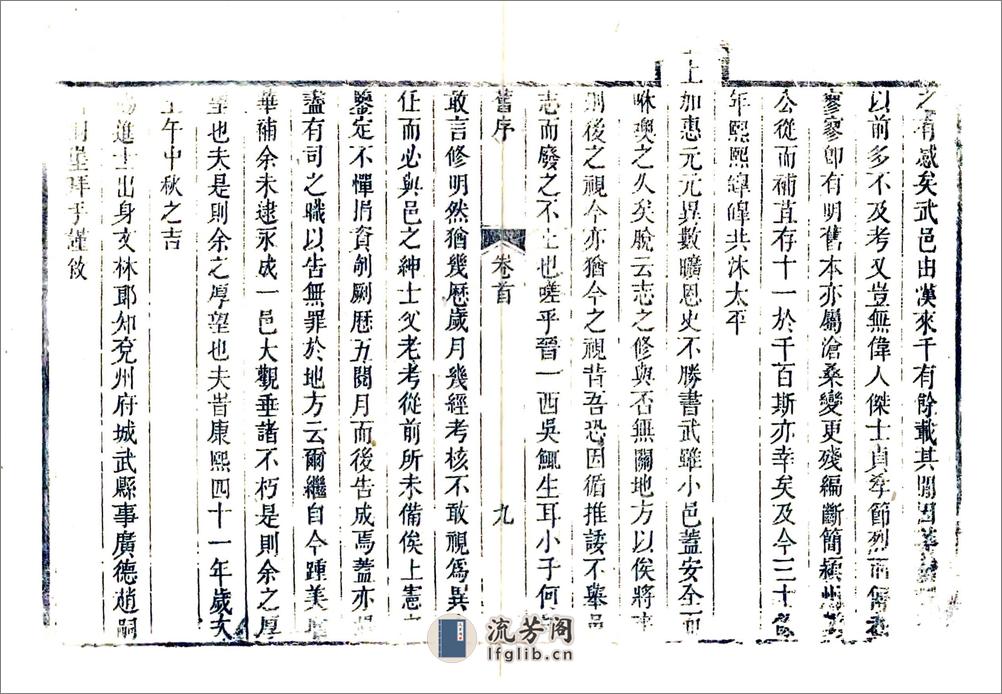 之有感矣武邑由漢來千有餘載其間
以前多不及考又豈無偉人傑士貞孝節烈而
寥寥即有明舊本亦屬滄桑變更殘編斷簡
公從而補苴存十一於千百斯亦幸矣及今三十
年熙熙皞皞共沐太平
上
加惠元元異數曠恩史不勝書武雖小邑蓋安全而
咻噢之久矣脫云志之修與否無關地方以俟將
則後之視今亦猶今之視昔吾恐因循推諉不舉
志而廢之不止也嗟乎晉一西吳鯫生耳小子何
舊序
卷首
九
敢言修明然猶幾歷歲月幾經考核不敢視為異
任而必與邑之紳士父老考從前所未備俟上憲
鑒定不憚捐資剞劂歷五閱月而後告成焉蓋亦
盡有司之職以告無罪於地方云爾繼自今踵美
華補余未逮永成一邑大觀垂諸不朽是則余之厚
望也夫是則余之厚望也夫旹康熙四十一年歲次
壬午中秋之吉
賜進士出身文林郎知兗州府城武縣事廣德趙嗣
拜手謹敘
流芳阁
lfglib.cn